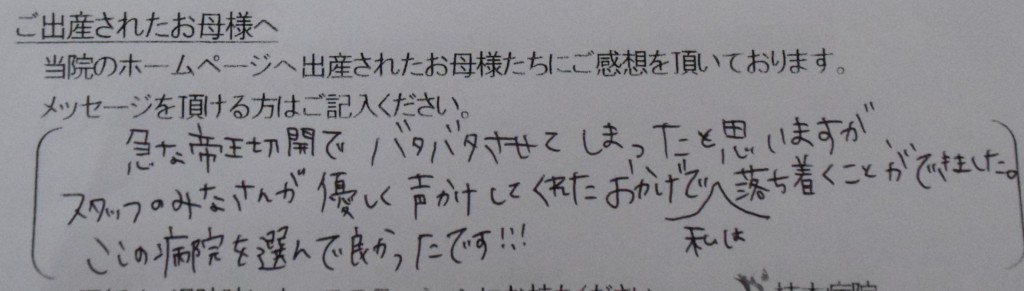 ご出産されたお母様へ
当院のホームページへ出産されたお母様たちにご感想を頂いております。
メッセージを頂ける方はご記入ください。
急な帝王切開でバタバタさせてしまったと思いますが
スタッフのみなさんが優しく声かけしてくれたおかげで私は落ち着くことができました。
ここの病院を選んで良かったです!!!